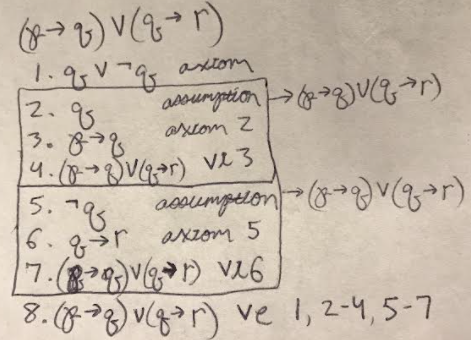 (p→q)∨(q→r)
1. q∨¬q axiom
2. q assumption →(p→q)∨(q→r)
3. p→q axiom 2
4. (p→q)∨(q→r) ∨i 3
5. ¬q assumption →(p→q)∨(q→r)
6. q→r axiom 5
7. (p→q)∨(q→r) ∨i 6
8. (p→q)∨(q→r) ∨e 1, 2-4, 5-7